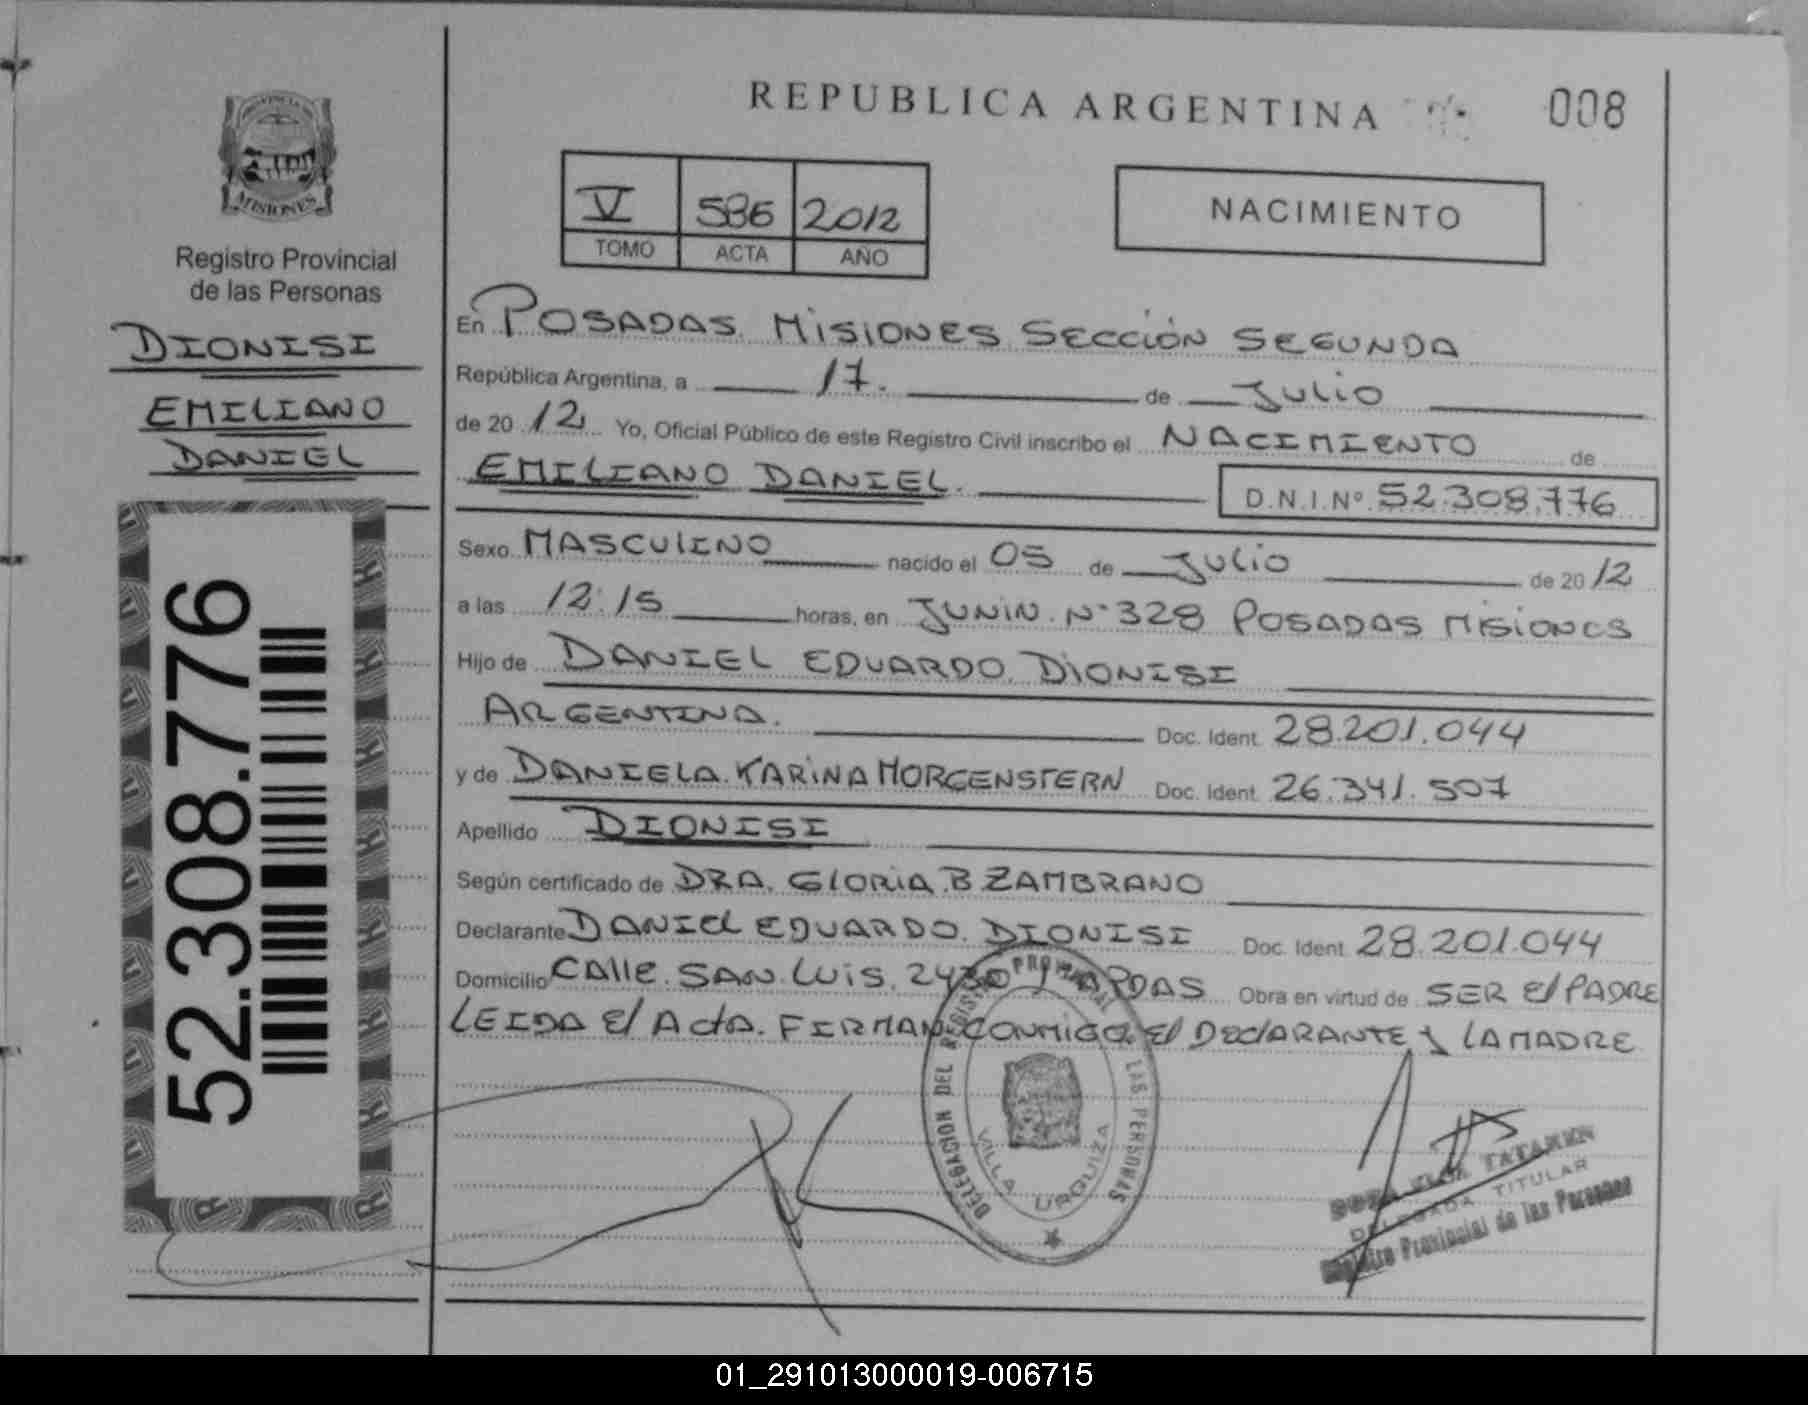 REPUBLICA ARGENTINA
008
V 586 2012
TOMO ACTA AÑO
NACIMIENTO
MISIONES
Registro Provincial
de las Personas
DIONISI
EMILIANO
DANIEL
52.308.776
En POSADAS. MISIONES SECCIÓN SEGUNDA
República Argentina, a 17. de JULIO
de 20 12 Yo, Oficial Público de este Registro Civil inscribo el NACIMIENTO de
EMILIANO DANIEL. D.N.I.Nº 52.308.776
Sexo MASCULINO nacido el 05 de JULIO de 20 12
a las 12:15 horas, en JUNIN. Nº 328 POSADAS MISIONES
Hijo de DANIEL EDUARDO DIONISI
ARGENTINA. Doc. Ident. 28.201.044
y de DANIELA KARINA MORGENSTERN Doc. Ident. 26.341.507
Apellido DIONISI
Según certificado de DRA. GLORIA B ZAMBRANO
Declarante DANIEL EDUARDO DIONISI Doc. Ident. 28.201.044
Domicilio CALLE SAN LUIS. Obra en virtud de SER El PADRE
LEIDA El ActA. FIRMAN CONMIGO El DEClARANTE y LA MADRE
DELEGACION DEL REGISTRO PROVINCIAL LAS PERSONAS
VILLA URQUIZA
TATAREN
DELEGADA TITULAR
Registro Provincial de las Personas
01_291013000019-006715